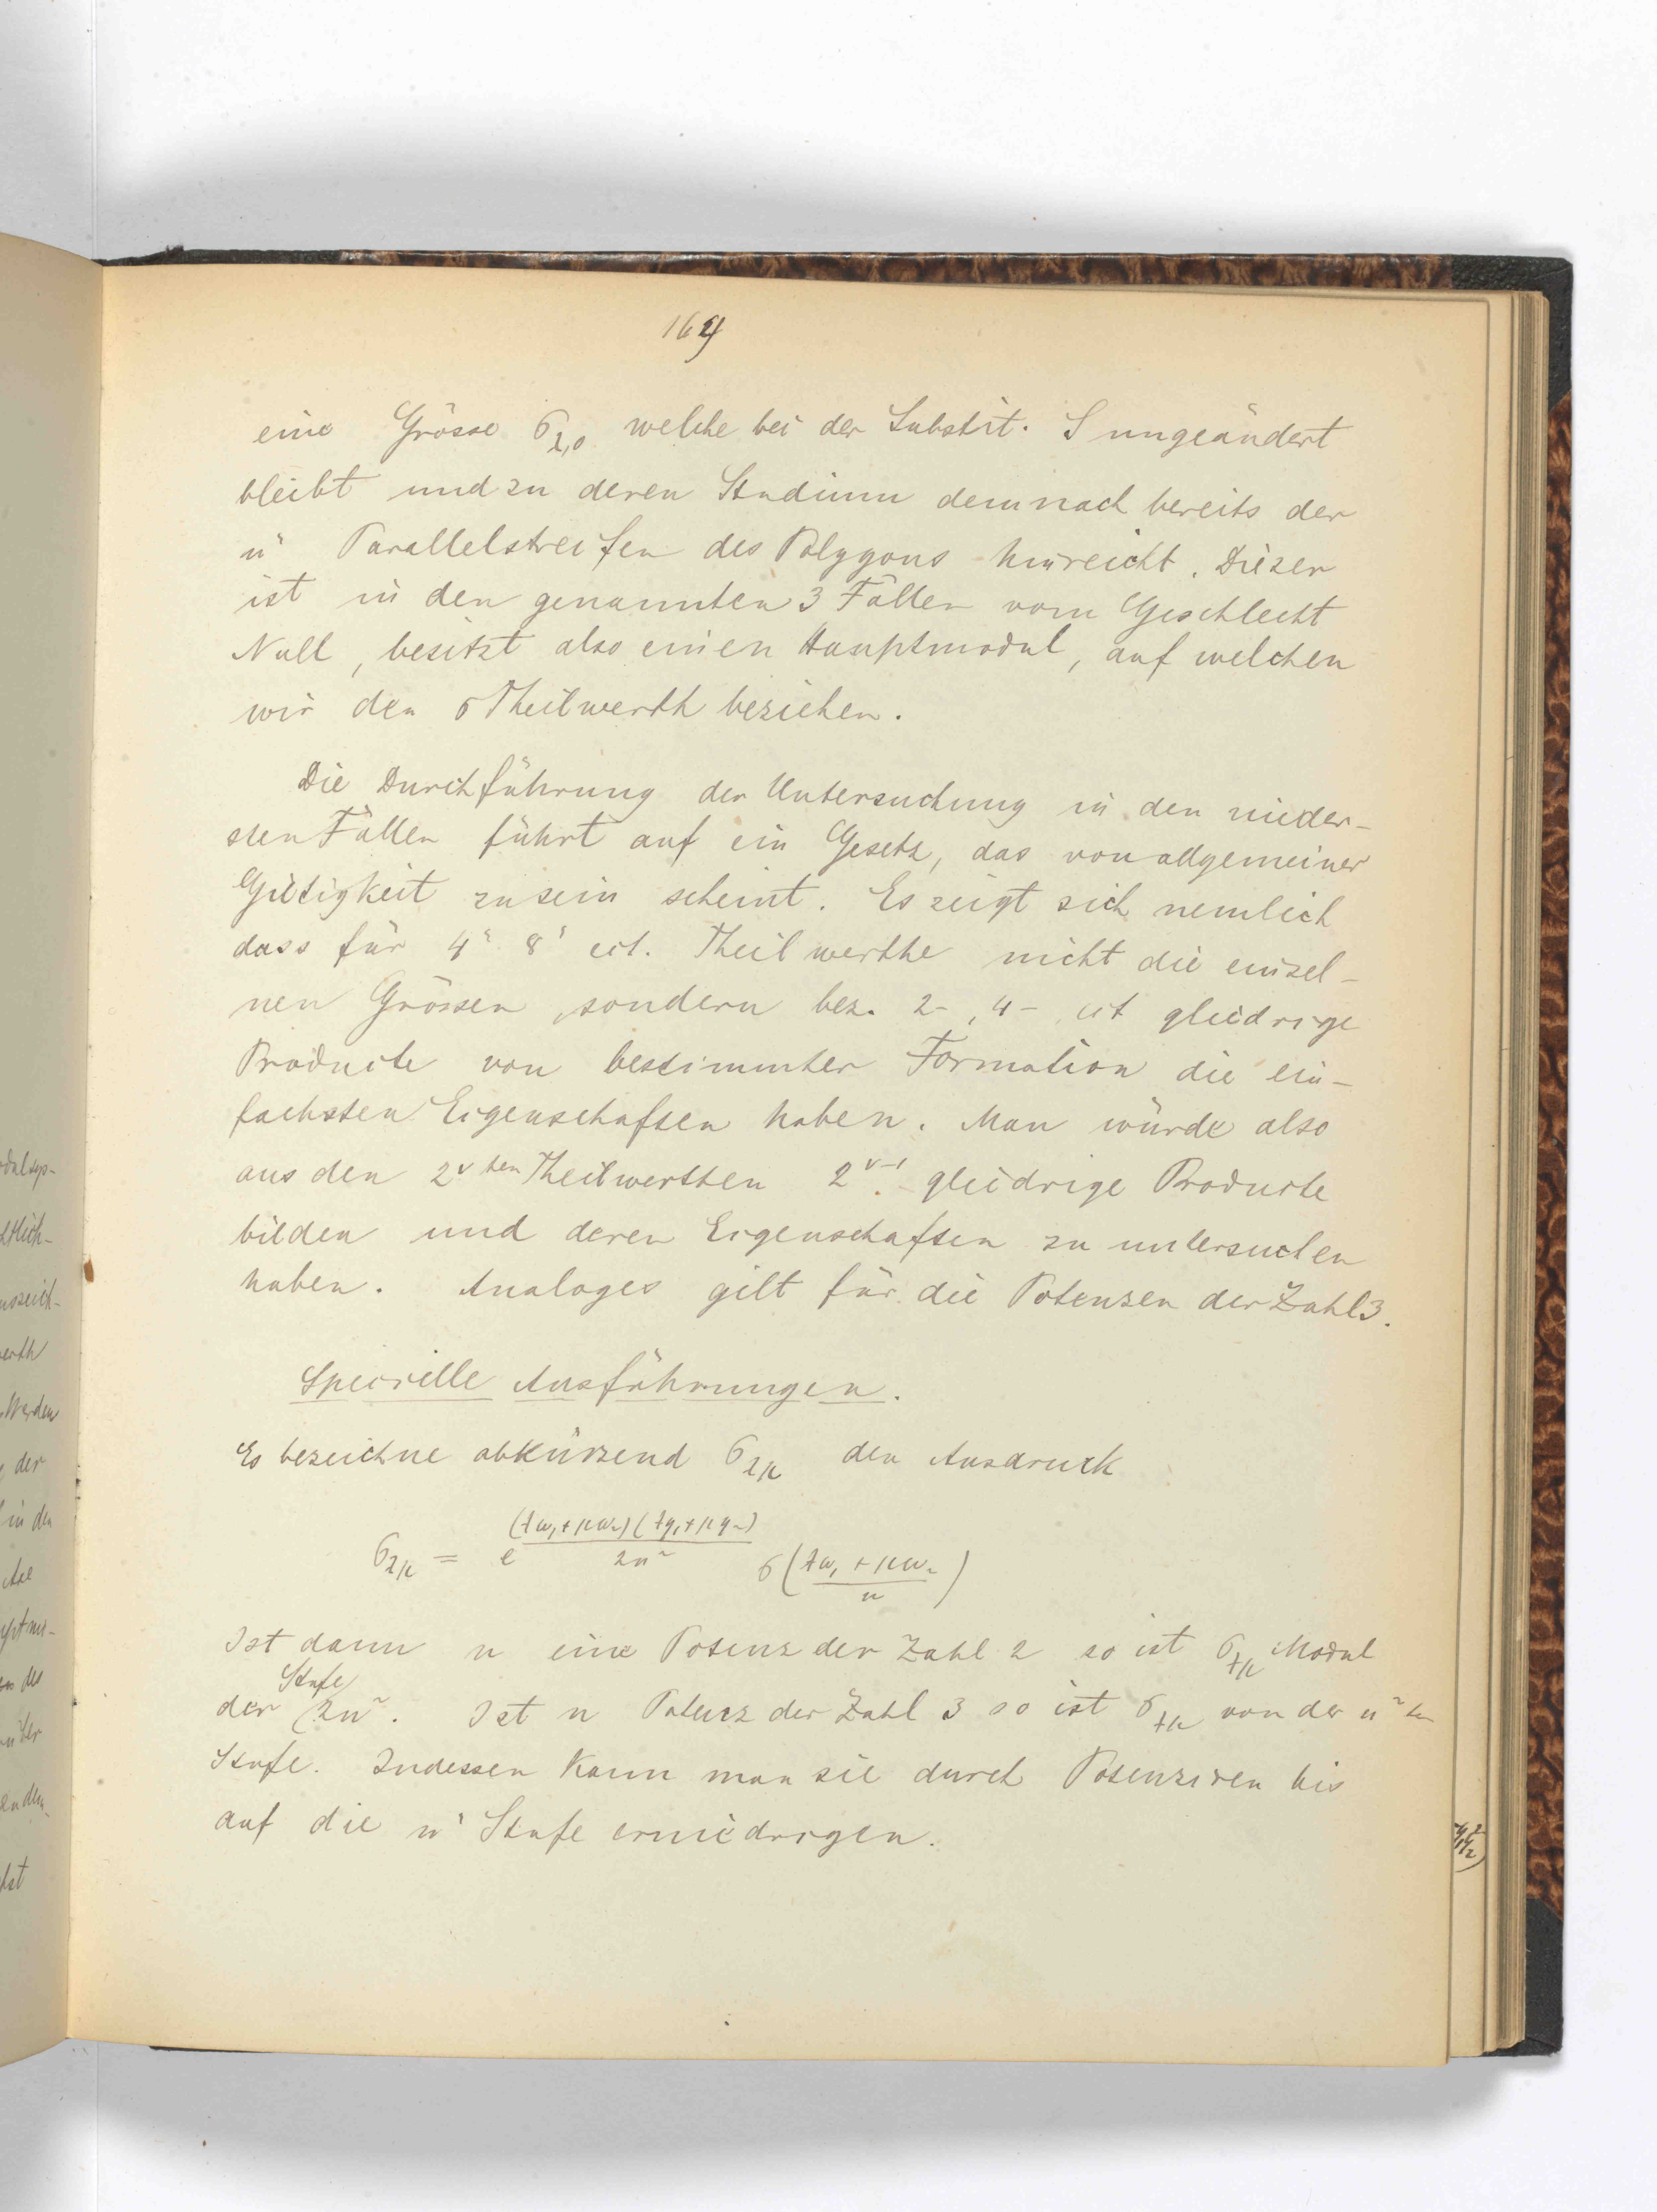 164
eine Grösse σ_{λ,0} welche bei der Substit. S ungeändert
bleibt und zu deren Studium demnach bereits der
n' Parallelstreifen des Polygons hinreicht. Dieser
ist in den genannten 3 Fällen vom Geschlecht
Null, besitzt also einen Hauptmodul, auf welchen
wir den σ Theilwerth beziehen.
Die Durchführung der Untersuchung in den nieder-
sten Fällen führt auf ein Gesetz, das von allgemeiner
Gültigkeit zu sein scheint. Es zeigt sich nemlich
dass für 4' 8' ect. Theilwerthe nicht die einzel-
nen Grössen, sondern bez. 2-, 4- ect gliedrige
Producte von bestimmter Formation die ein-
fachsten Eigenschaften haben. Man würde also
aus den 2^{ν ten} Theilwerthen 2^{ν-1} gliedrige Producte
bilden und deren Eigenschaften zu untersuchen
haben. Analoges gilt für die Potenzen der Zahl 3.
Specielle Ausführungen.
Es bezeichne abkürzend σ_{λμ} den Ausdruck
σ_{λμ} = e^{\frac{(λω_1+μω_2)(λη_1+μη_2)}{2n^2}} σ(\frac{λω_1+μω_2}{n})
Ist dann n eine Potenz der Zahl 2 so ist σ_{λμ} Modul
Stufe
der 2n². Ist n Potenz der Zahl 3 so ist σ_{λμ} von der n² ten
Stufe. Indessen kann man sie durch Potenziren bis
auf die n' Stufe erniedrigen.